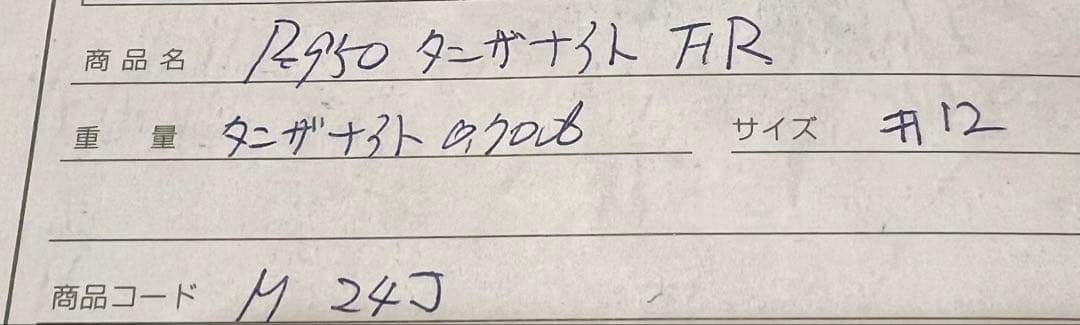 商品名 Pt950 タンザナイト FR
重量 タンザナイト 0.70ct サイズ #12
商品コード M 24J